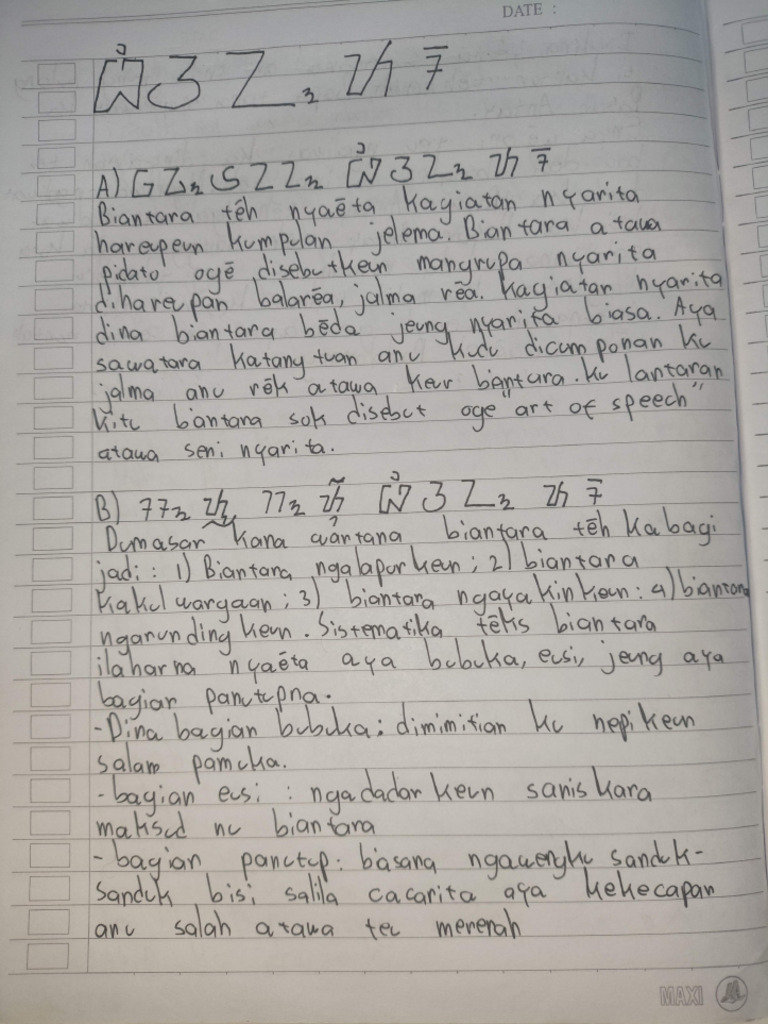 DATE :
A)
Biantara tēh nyaēta kagiatan nyarita
hareupeun kumpulan jelema. Biantara atawa
pidato ogē disebutkeun mangrupa nyarita
dihareupan balarēa, jalma rēa. Kagiatan nyarita
dina biantara bēda jeung nyarita biasa. Aya
sawatara katangtuan anu kudu dicumponan ku
jalma anu rēk atawa keur biantara. Ku lantaran
kitu biantara sok disebut oge "art of speech"
atawa seni nyarita.
B)
Dumasar kana wartana biantara tēh kabagi
jadi : 1) Biantara ngalaporkeun ; 2) biantara
kakulwargaan ; 3) biantara ngayakinkeun : 4) biantara
ngarundingkeun. Sistematika tēks biantara
ilaharna nyaēta aya bubuka, eusi, jeung aya
bagian panutupna.
- Dina bagian bubuka : dimimitian ku nepikeun
salam pamuka.
- bagian eusi : ngadadarkeun saniskara
maksud nu biantara
- bagian panutup : basana ngawengku sanduk-
sanduk bisi salila cacarita aya kekecapan
anu salah atawa teu merenah
MAXI